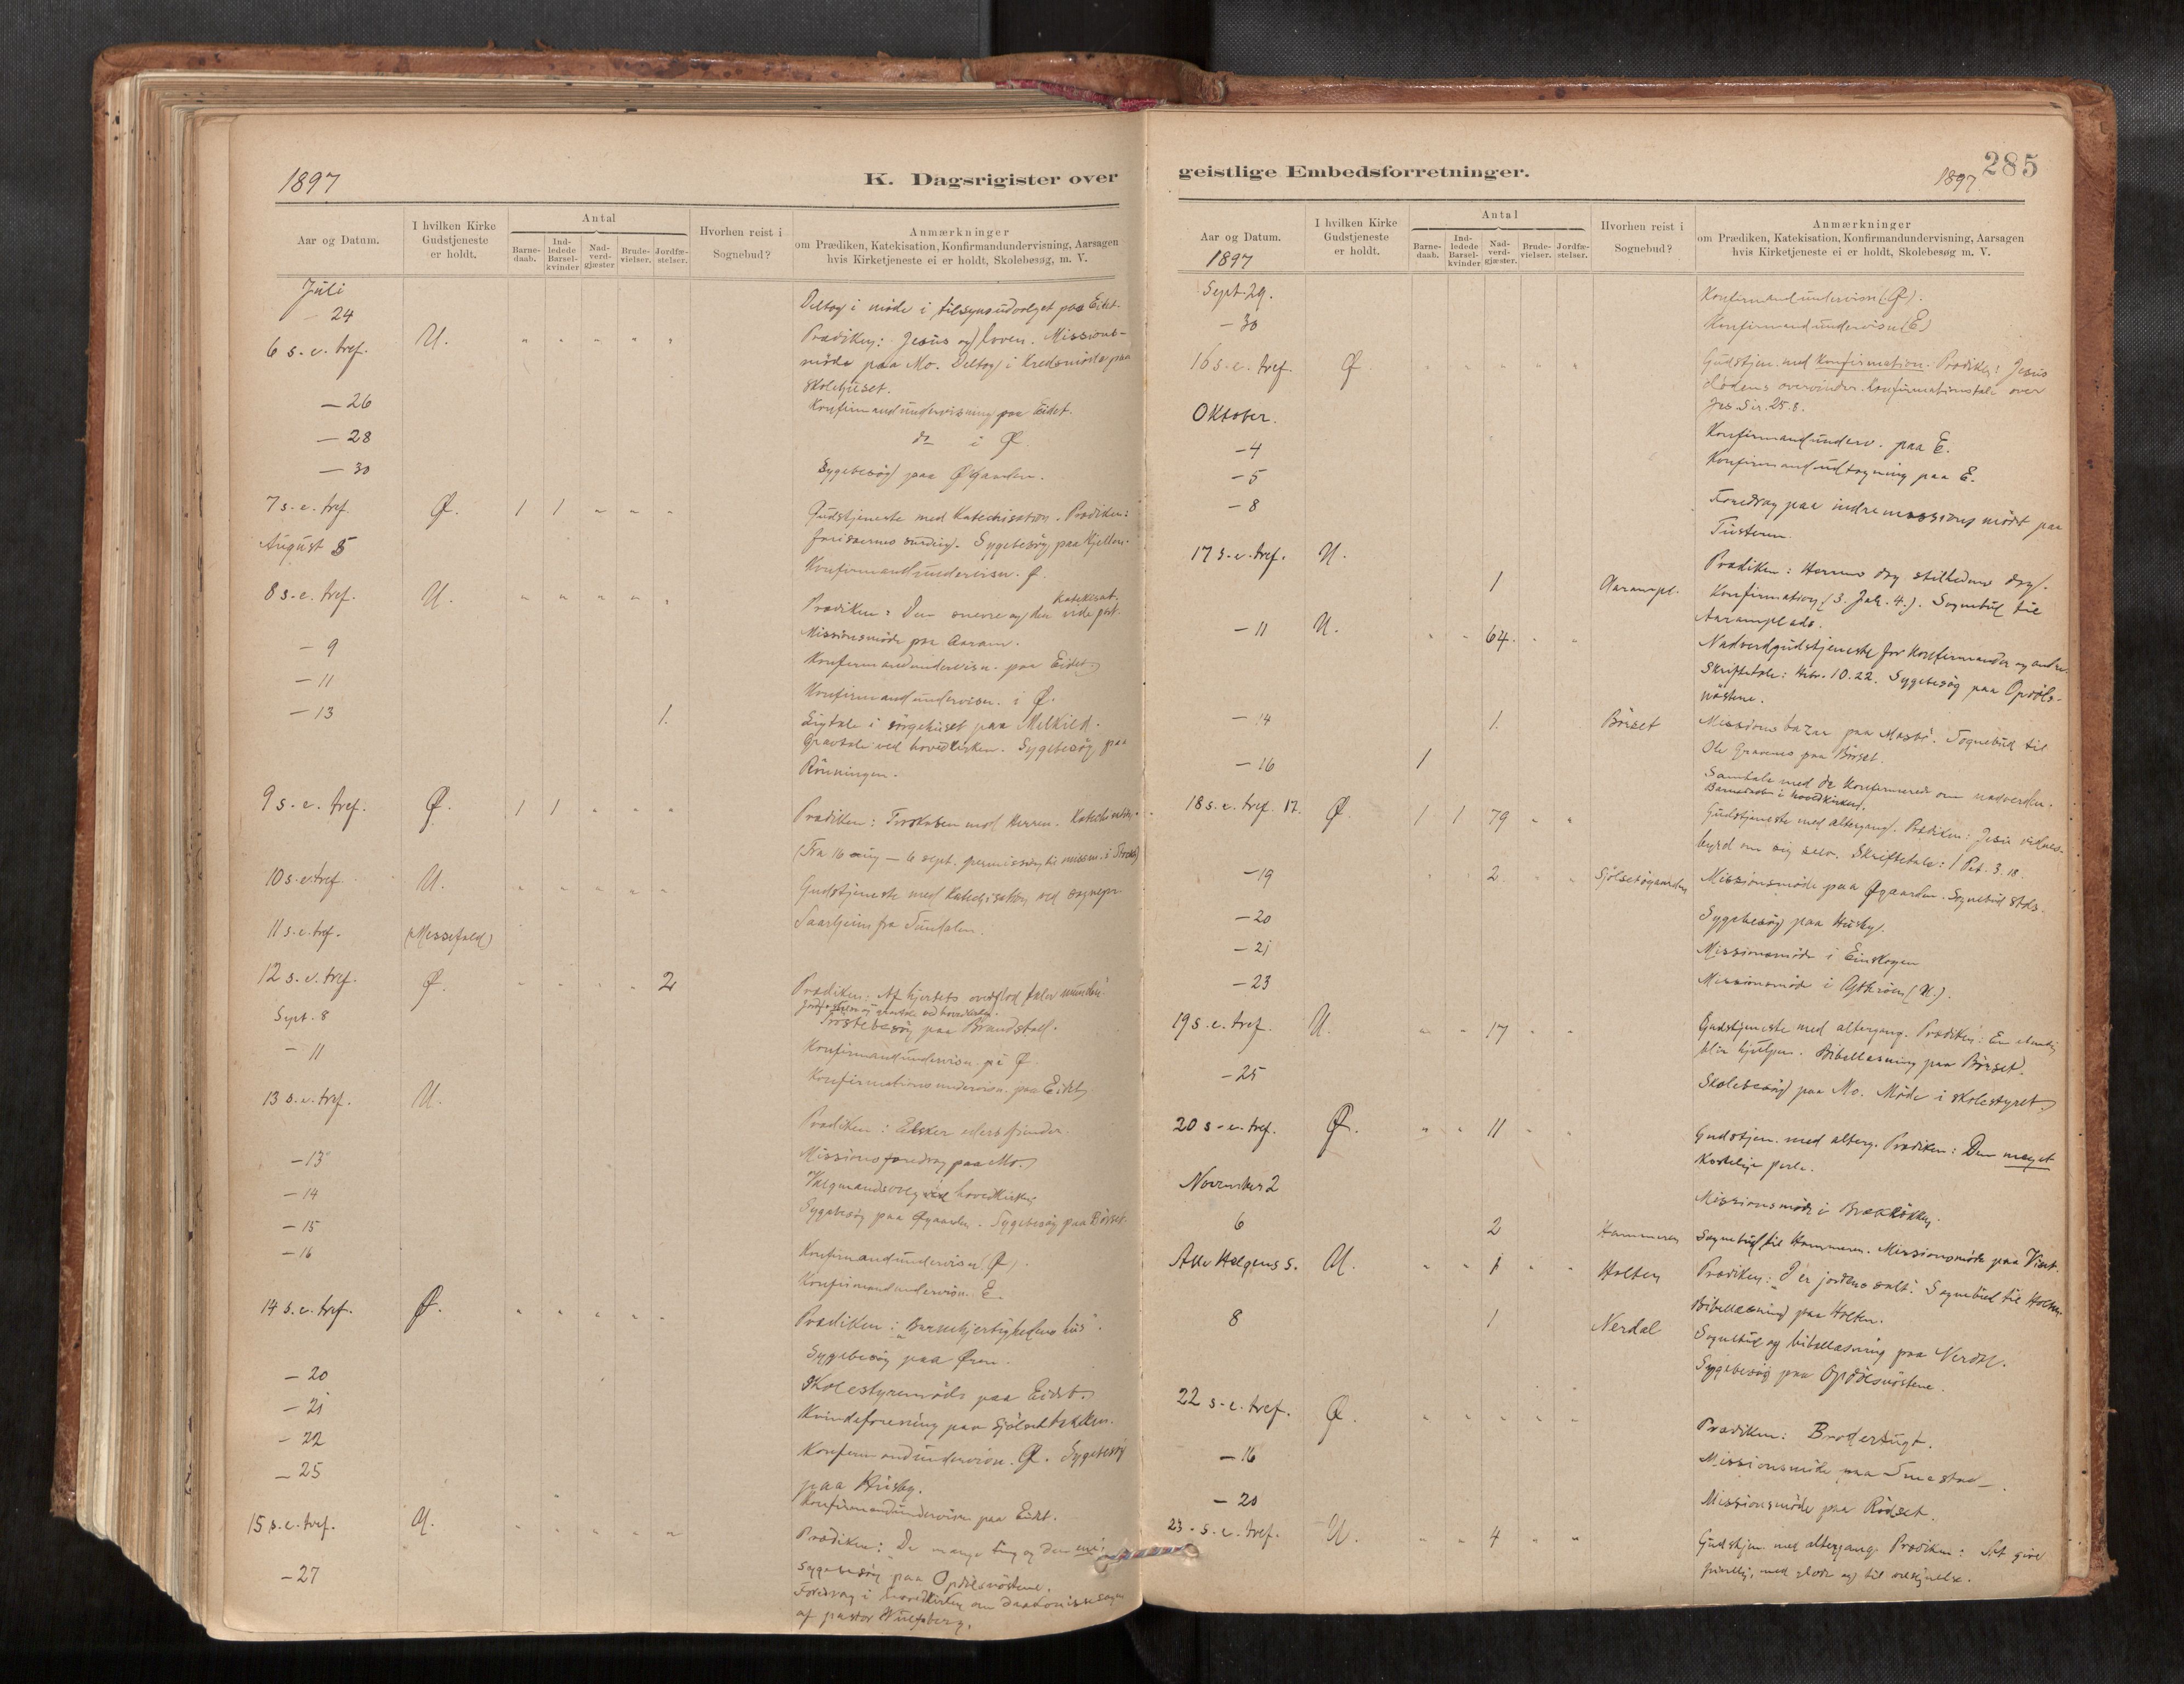 1897
K. Dagsrigister over
Aar og Datum.
I hvilken Kirke Gudstjeneste er holdt.
Antal
Barne-daab.
Ind-ledede Barsel-kvinder
Nad-verd-gjæster.
Brude-vielser.
Jordfæ-stelser.
Hvorhen reist i Sognebud?
Anmærkninger
om Prædiken, Katekisation, Konfirmandundervisning, Aarsagen
hvis Kirketjeneste ei er holdt, Skolebesøg, m. V.
Juli
– 24 Deltog i møde i tilsynsudvalget paa Eidet.
6 s. e. tref. U. " " " " " Prædiken: Jesus og loven. Missions-
møde paa Mo. Deltog i Kredsmøde paa
skolehuset.
– 26 Konfirmandundervisning paa Eidet.
– 28 do i Ø.
– 30 Sygebesøg paa Øgaarden.
7 s. e. tref. Ø. 1 1 " " " Gudstjeneste med Katechisation. Prædiken:
August 5 Sygebesøg paa
Konfirmandundervisn. Ø.
8 s. e. tref. U. " " " " " Prædiken: Den snevre og den vide port.
Katekisat.
Missionsmøde paa Aaram.
– 9 Konfirmandundervisn. paa Eidet
– 11 Konfirmandundervisn. i Ø.
– 13 1. Ligtale i sørgehuset paa Melkild.
Gravtale ved hovedkirken. Sygebesøg paa
Rönningen.
9 s. e. tref. Ø. 1 1 " " " Prædiken: Troskaben mod Herren.
(Fra 16 aug – 6 sept.
10 s. e. tref. U. " " " " " Gudstjeneste med Katechisation ved sognepr.
11 s. e. tref. (Messefald)
12 s. e. tref. Ø. " " " " 2 Prædiken: Af hjertets overflod taler munden.
Sept. 8 Trøstebesøg paa Brandstad.
– 11 Konfirmandundervisn. i Ø.
Konfirmationsundervisn. paa Eidet
13 s. e. tref. U. Prædiken: Elsker eders fiender.
– 13 Missionsforedrag paa Mo.
– 14 Valgmandsvalg ved hovedkirken
– 15 Sygebesøg paa Øgaarden. Sygebesøg paa Börset.
– 16 Konfirmandundervisn (Ø).
Konfirmandundervisn. E.
14 s. e. tref. Ø. " " " " " Prædiken: "Barmhjertighedens hus".
Sygebesøg paa Øren.
– 20 Skolestyremøde paa Eidet.
– 21 Kvindeforening paa
– 22 Konfirmandundervisn. Ø. Sygebesøg
– 25 paa Husby.
Konfirmandundervisn paa Eidet.
15 s. e. tref. U. " " " " " Prædiken: De mange ting og den ene.
– 27 Sygebesøg paa
Foredrag i hovedkirken om
af pastor Wulfsberg.
285
geistlige Embedsforretninger.
1897
Aar og Datum.
1897
I hvilken Kirke Gudstjeneste er holdt.
Antal
Barne-daab.
Ind-ledede Barsel-kvinder
Nad-verd-gjæster.
Brude-vielser.
Jordfæ-stelser.
Hvorhen reist i Sognebud?
Anmærkninger
om Prædiken, Katekisation, Konfirmandundervisning, Aarsagen
hvis Kirketjeneste ei er holdt, Skolebesøg m. V.
Sept. 29. Konfirmandundervisn (Ø).
– 30 Konfirmandundervisn (E)
16 s. e. tref. Ø. " " " " " Gudstjen. med Konfirmation. Prædiken: Jesus
dødens overvinder. Konfirmationstale over
Oktober.
– 4 Konfirmandunderv. paa E.
– 5 Konfirmandudtagning paa E.
– 8 Foredrag paa indremissionsmødet paa
Tusteren.
17 s. e. tref. U. Prædiken: Herrens dag, stilhedens dag.
1 Aarampl. Konfirmation (3. Joh. 4.). Sognebud til
Aaramplads.
– 11 U. " " 64. " " Nadverdgudstjeneste for Konfirmander og andre.
Skriftetale: Hebr. 10. 22. Sygebesøg paa
– 14 1. Börset Missionsbazar paa Sognebud til
Ole Gravens paa Börset.
– 16 1 Samtale med de Konfirmerede om nadverden.
Barnedaab i hovedkirken.
18 s. e. tref. 17. Ø. 1 1 79 " " Gudstjeneste med altergang. Prædiken: Jesu vidnes-
byrd om sig selv. Skriftetale: 1 Pet. 3. 18.
– 19 2 Missionsmøde paa Øgaarden. Sognebud
– 20 Sygebesøg paa Husby.
– 21 Missionsmøde i Einskogen
– 23 Missionsmøde i
19 s. e. tref. U. " " 17 " " Gudstjeneste med altergang. Prædiken: En
blir hjulpen. Bibellæsning paa Börset.
– 25 Skolebesøg paa Mo. Møde i skolestyret.
20 s. e. tref. Ø. " " 11 " " Gudstjen. med alterg. Prædiken: Den meget
kostelige perle.
November 2 Missionsmøde i
6 2 Hammeren Sognebud til Hammeren. Missionsmøde paa
Alle Helgens s. U. " " 1 " " Holten Prædiken: I er jordens salt. Sognebud til Holten.
Bibellæsning paa Holten.
8 1 Nerdal Sognebud og bibellæsning paa Nerdal.
Sygebesøg paa
22 s. e. tref. Ø. " " " " " Prædiken: Brodertugt.
– 16 Missionsmøde paa
– 20 Missionsmøde paa Rödset.
23. s. e. tref. U. " " 4 " Gudstjen. med altergang. Prædiken: At give
med glæde og til velsignelse.